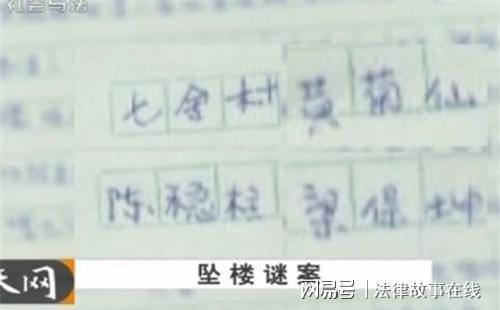 社会与法
七舍村 黄菊仙
陈稳柱 梁保坤
天网
坠楼谜案
网易号 | 法律故事在线